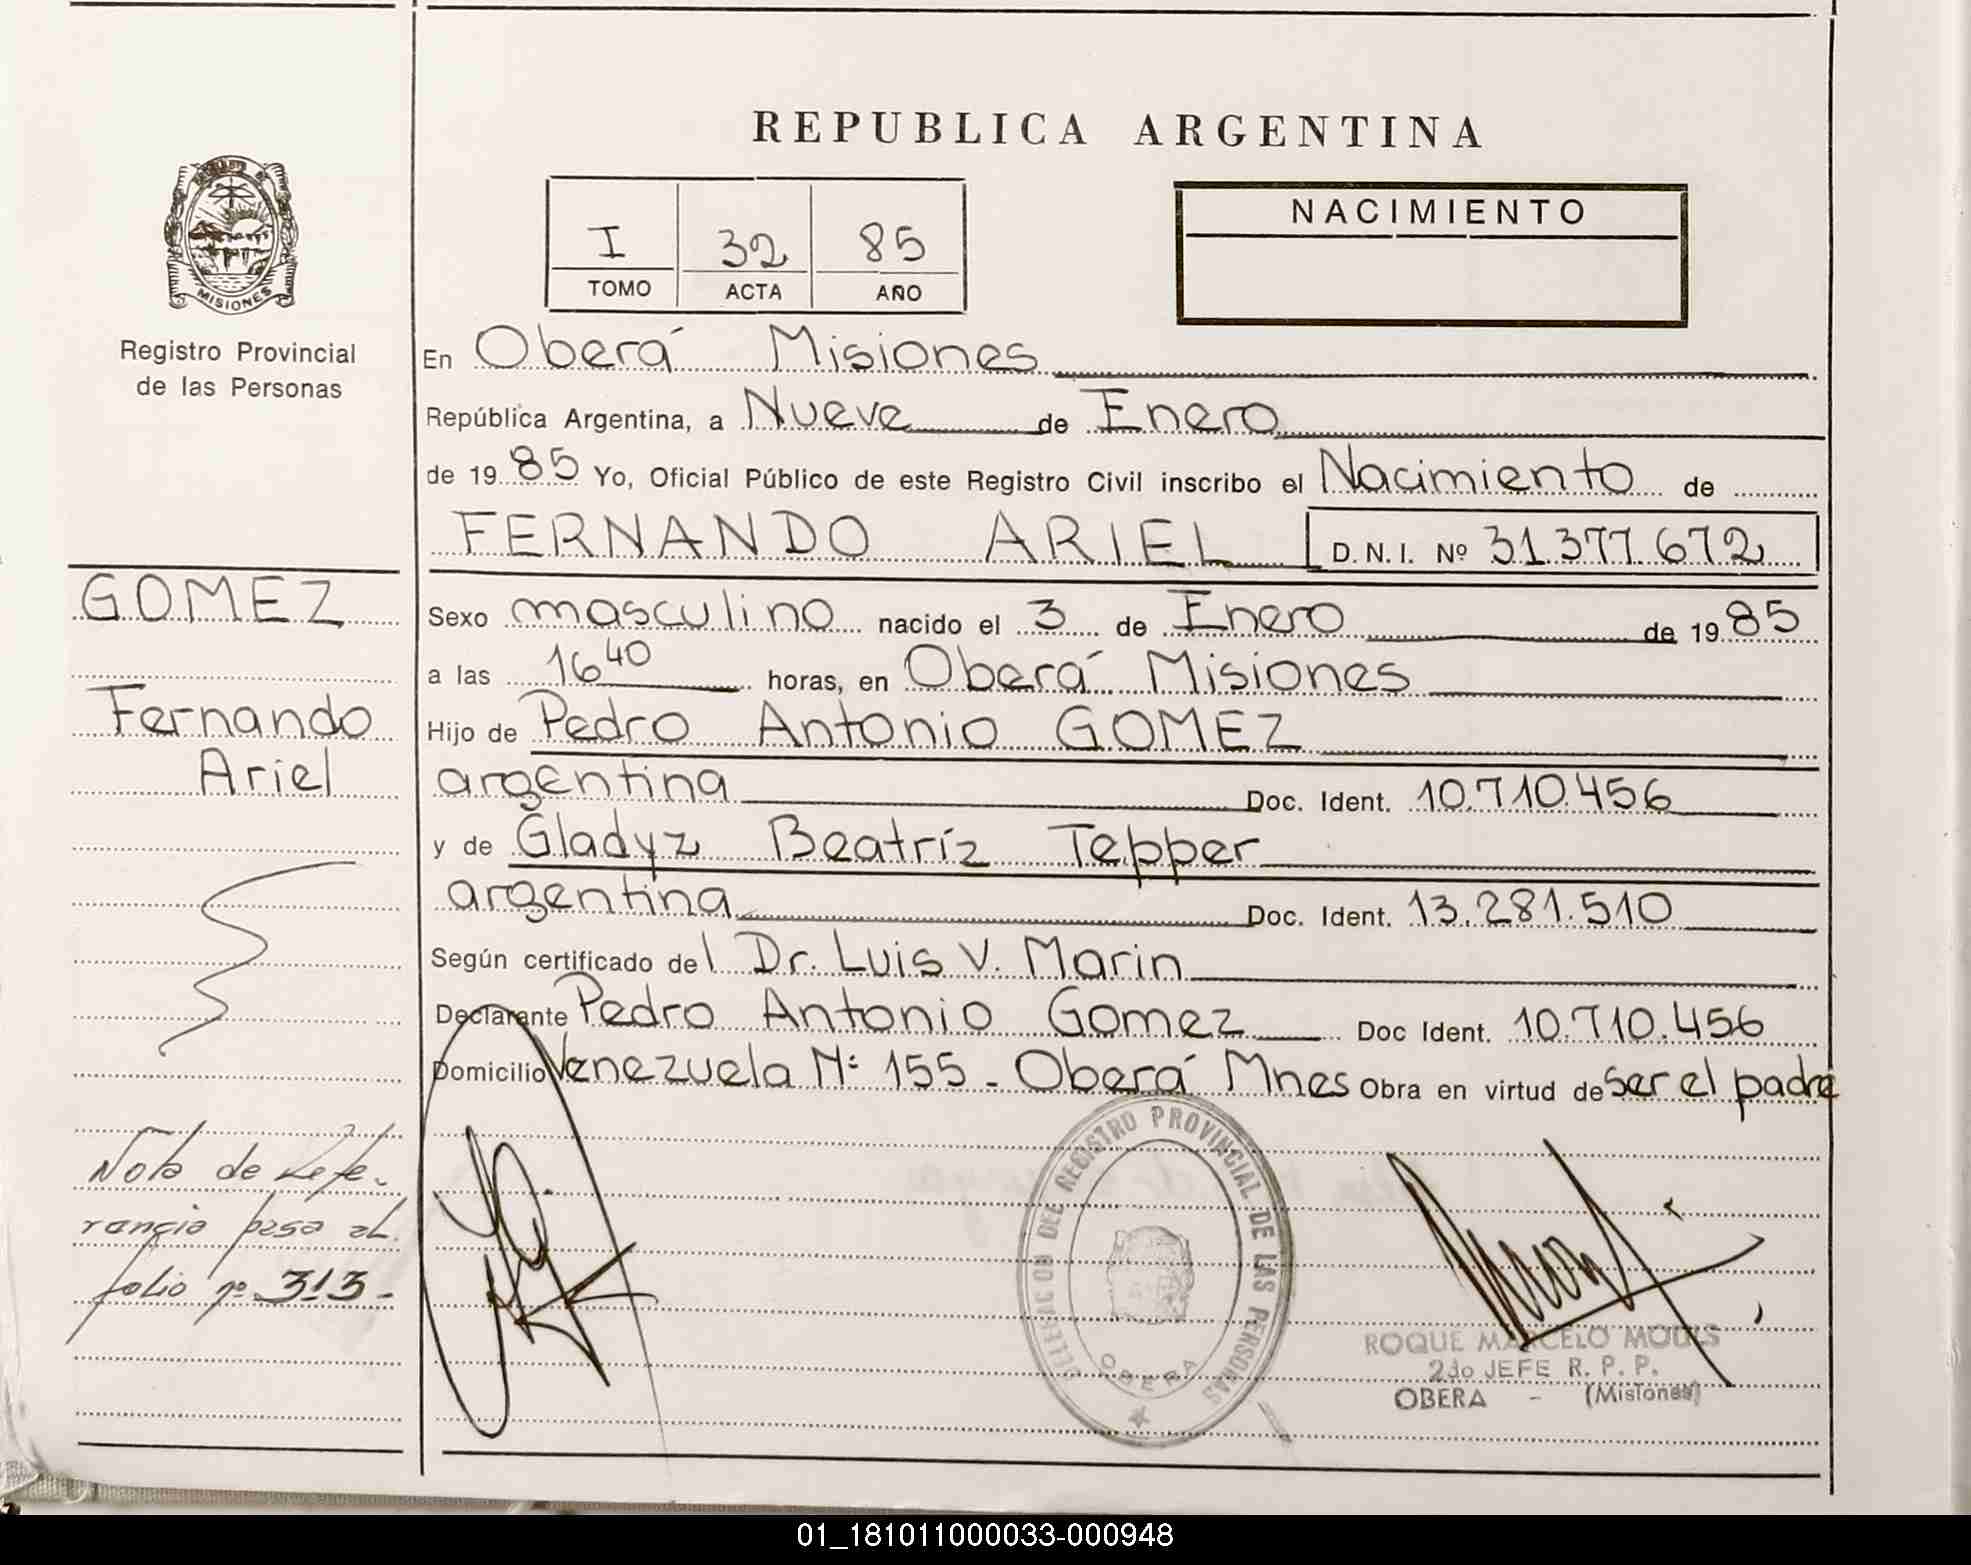 REPUBLICA ARGENTINA
MISIONES
Registro Provincial
de las Personas
I 32 85
TOMO ACTA AÑO
NACIMIENTO
En Oberá Misiones
República Argentina, a Nueve de Enero
de 1985 Yo, Oficial Público de este Registro Civil inscribo el Nacimiento de
FERNANDO ARIEL D.N.I. Nº 31.377.672
GOMEZ
Fernando
Ariel
Sexo masculino nacido el 3 de Enero de 1985
a las 16 40 horas, en Oberá Misiones
Hijo de Pedro Antonio GOMEZ
argentina Doc. Ident. 10.710.456
y de Gladyz Beatríz Tepper
argentina Doc. Ident. 13.281.510
Según certificado del Dr. Luis V. Marin
Declarante Pedro Antonio Gomez Doc Ident. 10.710.456
Domicilio Venezuela Nº 155 - Oberá Mnes Obra en virtud de ser el padre
Nota de Refe-
rancia pasa al
folio nº 313-
DELEGACION DEL REGISTRO PROVINCIAL DE LAS PERSONAS
OBERA
ROQUE MARCELO MODIS
2do JEFE R. P. P.
OBERA - (Misiones)
01_181011000033-000948